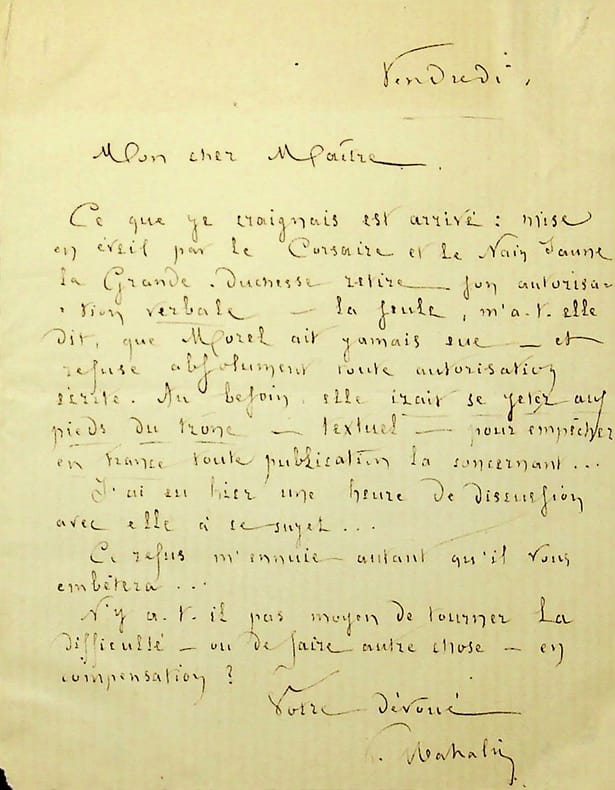 Vendredi.
Mon cher Maître.
Ce que je craignais est arrivé : mise
en éveil par le Corsaire et le Nain Jaune
la Grande Duchesse retire son autorisa-
tion verbale — la seule, m'a-t-elle
dit, que Morel ait jamais eue — et
refuse absolument toute autorisation
écrite. Au besoin, elle irait se jeter aux
pieds du trone — textuel — pour empêcher
en France toute publication la concernant...
J'ai eu hier une heure de discussion
avec elle à ce sujet...
Ce refus m'ennuie autant qu'il vous
embêtera...
N'y a-t-il pas moyen de tourner la
difficulté — ou de faire autre chose — en
compensation ?
Votre dévoué
Mahalin